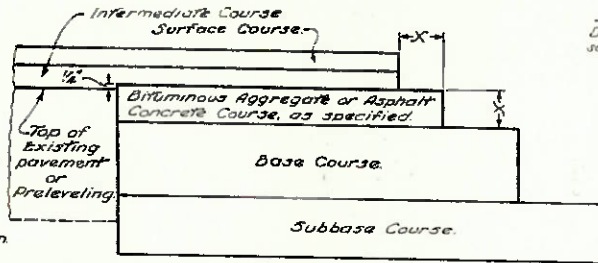 Intermediate Course
Surface Course.
X
1/4"
Bituminous Aggregate or Asphalt
Concrete Course, as specified.
X
Top of
Existing
pavement
or
Preleveling.
Base Course.
Subbase Course.